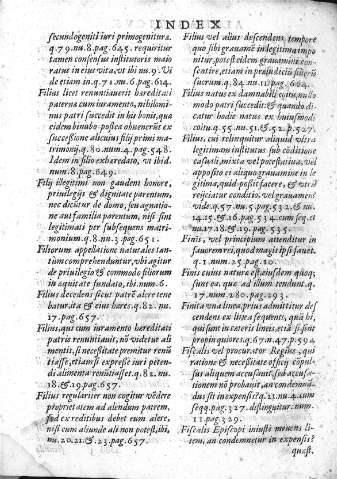 INDEX
secundogeniti iuri primogenitura.
q.79.nu.8.pag.645. requiritur
tamen consensus institutoris maio
ratus in eius vita, vt ibi nu.9. Vi
de etiam in.q.71.nu.6.pag.600.
Filius licet renuntiauerit hæreditati
paternæ cum iuramento, nihilomi
nus patri succedit in his bonis, quæ
eidem
primi ma-
trimonij.q.80.nu.4.pag.548.
Idem in filio exhæredato, vt ibi d.
num.8.pag.649.
Filij illegitimi non gaudent honore,
priuilegijs & dignitate parentum,
nec dicitur de domo, seu agnatio
ne aut familia parentum, nisi sint
legitimati per subsequens matri-
monium.q.8.nu.3.pag.651.
Filiorum appellatione naturales tan-
tum comprehenduntur, vbi agitur
de priuilegio & commodo filiorum
in æquitate fundato, ibi.num.6.
Filius decedens sicut patrẽ alere tene
batur, ita & eius hæres.q.82.nu.
17.pag.657.
Filius, qui cum iuramento hæreditati
patris renuntiauit, nõ videtur ali
mentis, si necessitate premitur renũ
tiasse, etiamsi expresse iuri peten-
di alimenta renuntiasset.q.82.nu.
18.&.19.pag.657.
Filius regulariter non cogitur vẽdere
proprietatem ad alendum patrem,
sed ex reditibus debet eum alere,
nisi cum aliunde ali non potest, ibi,
nu.20.21.&.23.pag.657.
Filius vel alius descendens, tempore
quo sibi grauamẽ in legitima impo
nitur, potest eidem grauamini con-
sentire, etiam in præiudiciũ
q.11.pag.664.
Filius natus ex damnabili coitu, nullo
modo patri succedit: & quando di-
catur hodie natus ex huiusmodi
coitu.q.55.nu.51.&.52.p.527.
Filius, cui relinquitur aliquid vltra
legitimam institutus sub cõditione
casuali, mixta vel potestatiua, vel
apposito ei aliquo grauamine in le
gitima, quid possit facere, & vtrũ
reijciatur conditio, vel grauamen
vide.q.57.nu.5.pag.532.& nu-
14.15.&.16.pag.534.cum seq.et
nu.17.18.&.19.pag.535.
Finis, vel principium attenditur in
fauore rei, quod magis ipsi fauet.
q.1.num.25.pag.10.
Finis cuius natura est, eiusdem quoq;
sunt ea. quæ ad illum tendunt.q.
17.num.280.pag.293.
Finita vna linea, prius admittitur de-
scendens ex linea sequenti, quàm hi,
qui sunt in cæteris lineis, etiã si sint
propinquiores.q.67.nu.47.p.594
Fiscalis vel procurator Regius, qui
ratione & necessitate officij compul
sus aliquem accusauit, si eius accu-
sationem nõ probauit, an condemnã
dus sit in expensis? q.21.nu.4.cum
seqq.pag.327. distinguitur.num.
11.pag.329.
Fiscalis Episcopi iniuste mouens li-
tem, an condemnetur in expensis?
quæst.